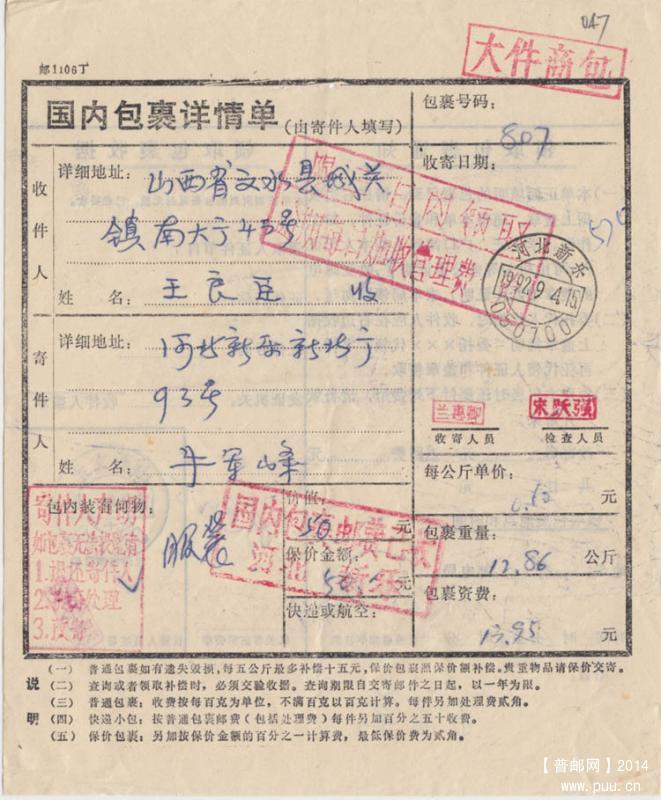 047
邮1106丁
大件商包
国内包裹详情单(由寄件人填写)
包裹号码:
807
收寄日期:
收件人
详细地址:
山西省文水县城关
镇南大于45号
姓名:
王良臣 收
寄件人
详细地址:
河北新乐
93号
姓名:
军峰
河北新乐
1992.9.4.15
050700
管理费
兰惠卿
宋跃强
收寄人员
检查人员
每公斤单价:
元
包裹重量:
12.86
公斤
包裹资费:
13.95
元
包内装有何物:
服装
价值:
50
元
保价金额:
50
元
快递或航空:
国内包裹邮费已收
河北 新乐
寄件人声明
如包裹无法投递请
1.退还寄件人
2.处理
3.改寄
说明
(一) 普通包裹如有遗失毁损,每五公斤最多补偿十五元,保价包裹照保价额补偿。贵重物品请保价交寄。
(二) 查询或者领取补偿时,必须交验收据。查询期限自交寄邮件之日起,以一年为限。
(三) 普通包裹:收费按每百克为单位,不满百克以百克计算。每件另加处理费贰角。
(四) 快递小包:按普通包裹邮费(包括处理费)每件另加百分之五十收费。
(五) 保价包裹:另加按保价金额的百分之一计算费,最低保价费为贰角。
【普邮网】2014
www.puu.cn